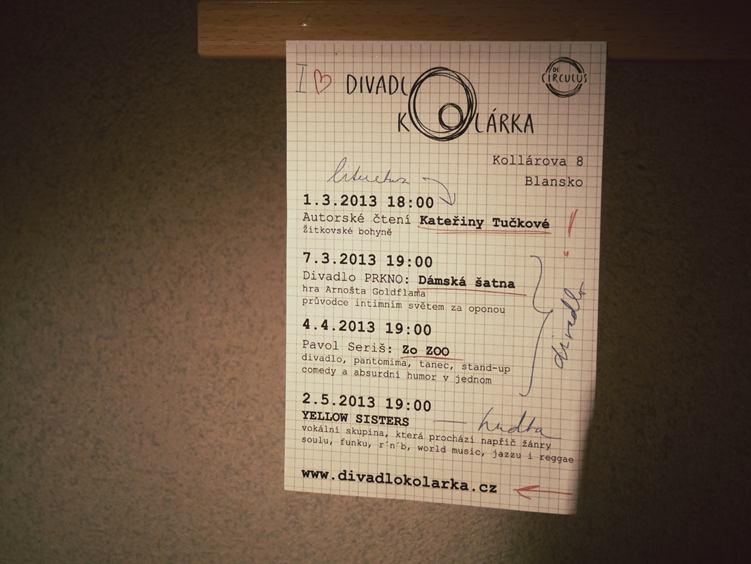 I ♥ DIVADLO
KOLÁRKA
DE CIRCULUS
Kollárova 8
Blansko
literatura
1.3.2013 18:00
Autorské čtení Kateřiny Tučkové !
žítkovské bohyně
7.3.2013 19:00
Divadlo PRKNO: Dámská šatna
hra Arnošta Goldflama
průvodce intimním světem za oponou
divadlo
4.4.2013 19:00
Pavol Seriš: Zo ZOO
divadlo, pantomima, tanec, stand-up
comedy a absurdní humor v jednom
2.5.2013 19:00
YELLOW SISTERS — hudba
vokální skupina, která prochází napříč žánry
soulu, funku, r´n´b, world music, jazzu i reggae
www.divadlokolarka.cz